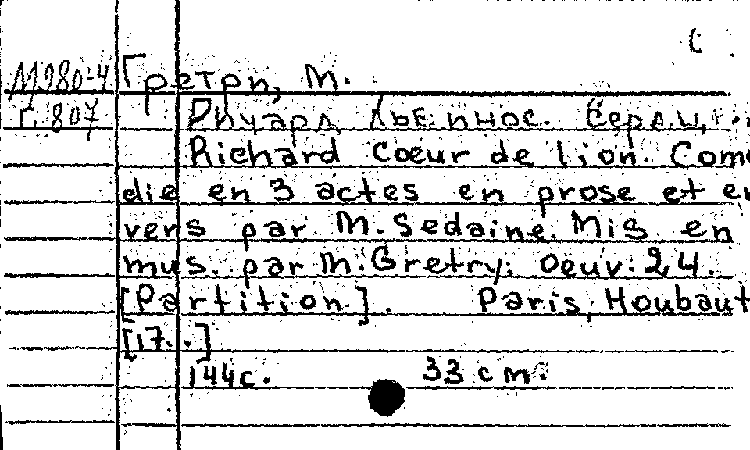 М980-4 Гретри, М.
Г. 807 Ричард Львиное Сердц
Richard Coeur de lion. Com
die en 3 actes en prose et e
vers par M. Sedaine. Mis en
mus. par M. Gretry. Oeuv. 24.
[Partition]. Paris, Houbaut
[17..]
144с. 33 cm.